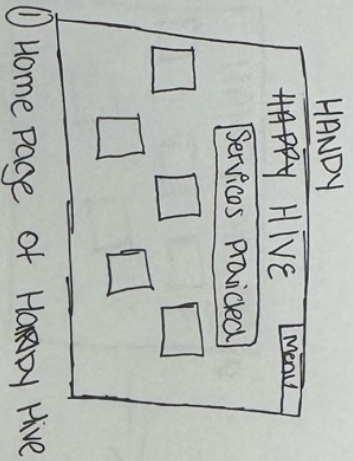 HANDY
HAPPY HIVE
Menu
Services provided
① Home Page of HANDY Hive